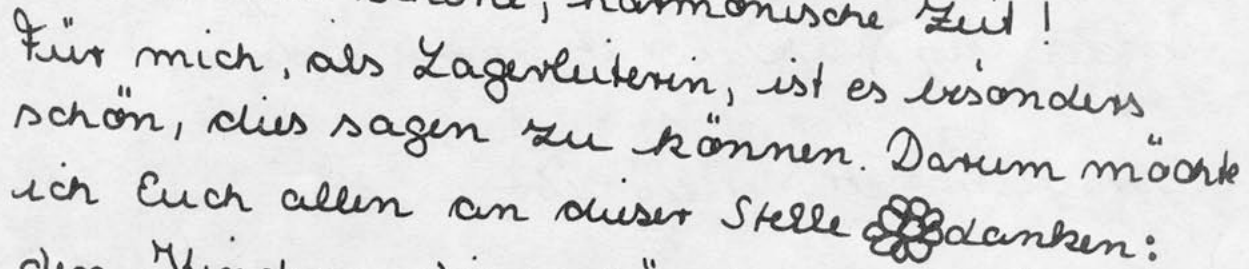 harmonische Zeit!
Für mich, als Lagerleiterin, ist es besonders
schön, dies sagen zu können. Darum möchte
ich Euch allen an dieser Stelle danken: